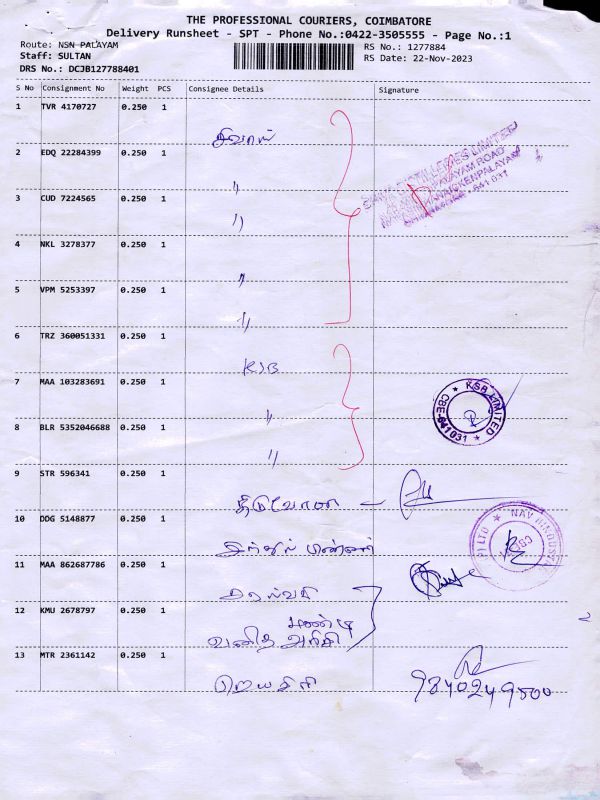 THE PROFESSIONAL COURIERS, COIMBATORE
Delivery Runsheet - SPT - Phone No.:0422-3505555 - Page No.:1
Route: NSN PALAYAM
RS No.: 1277884
Staff: SULTAN
RS Date: 22-Nov-2023
DRS No.: DCJB127788401
S No Consignment No Weight PCS Consignee Details Signature
1 TVR 4170727 0.250 1
2 EDQ 22284399 0.250 1
"
3 CUD 7224565 0.250 1
"
4 NKL 3278377 0.250 1
"
5 VPM 5253397 0.250 1
"
6 TRZ 360051331 0.250 1 KSB
7 MAA 103283691 0.250 1
"
KSB LIMITED
CBE-641031
8 BLR 5352046688 0.250 1
"
9 STR 596341 0.250 1
10 DDG 5148877 0.250 1
11 MAA 862687786 0.250 1
12 KMU 2678797 0.250 1
வனிதா அரிசி
13 MTR 2361142 0.250 1
9840249500